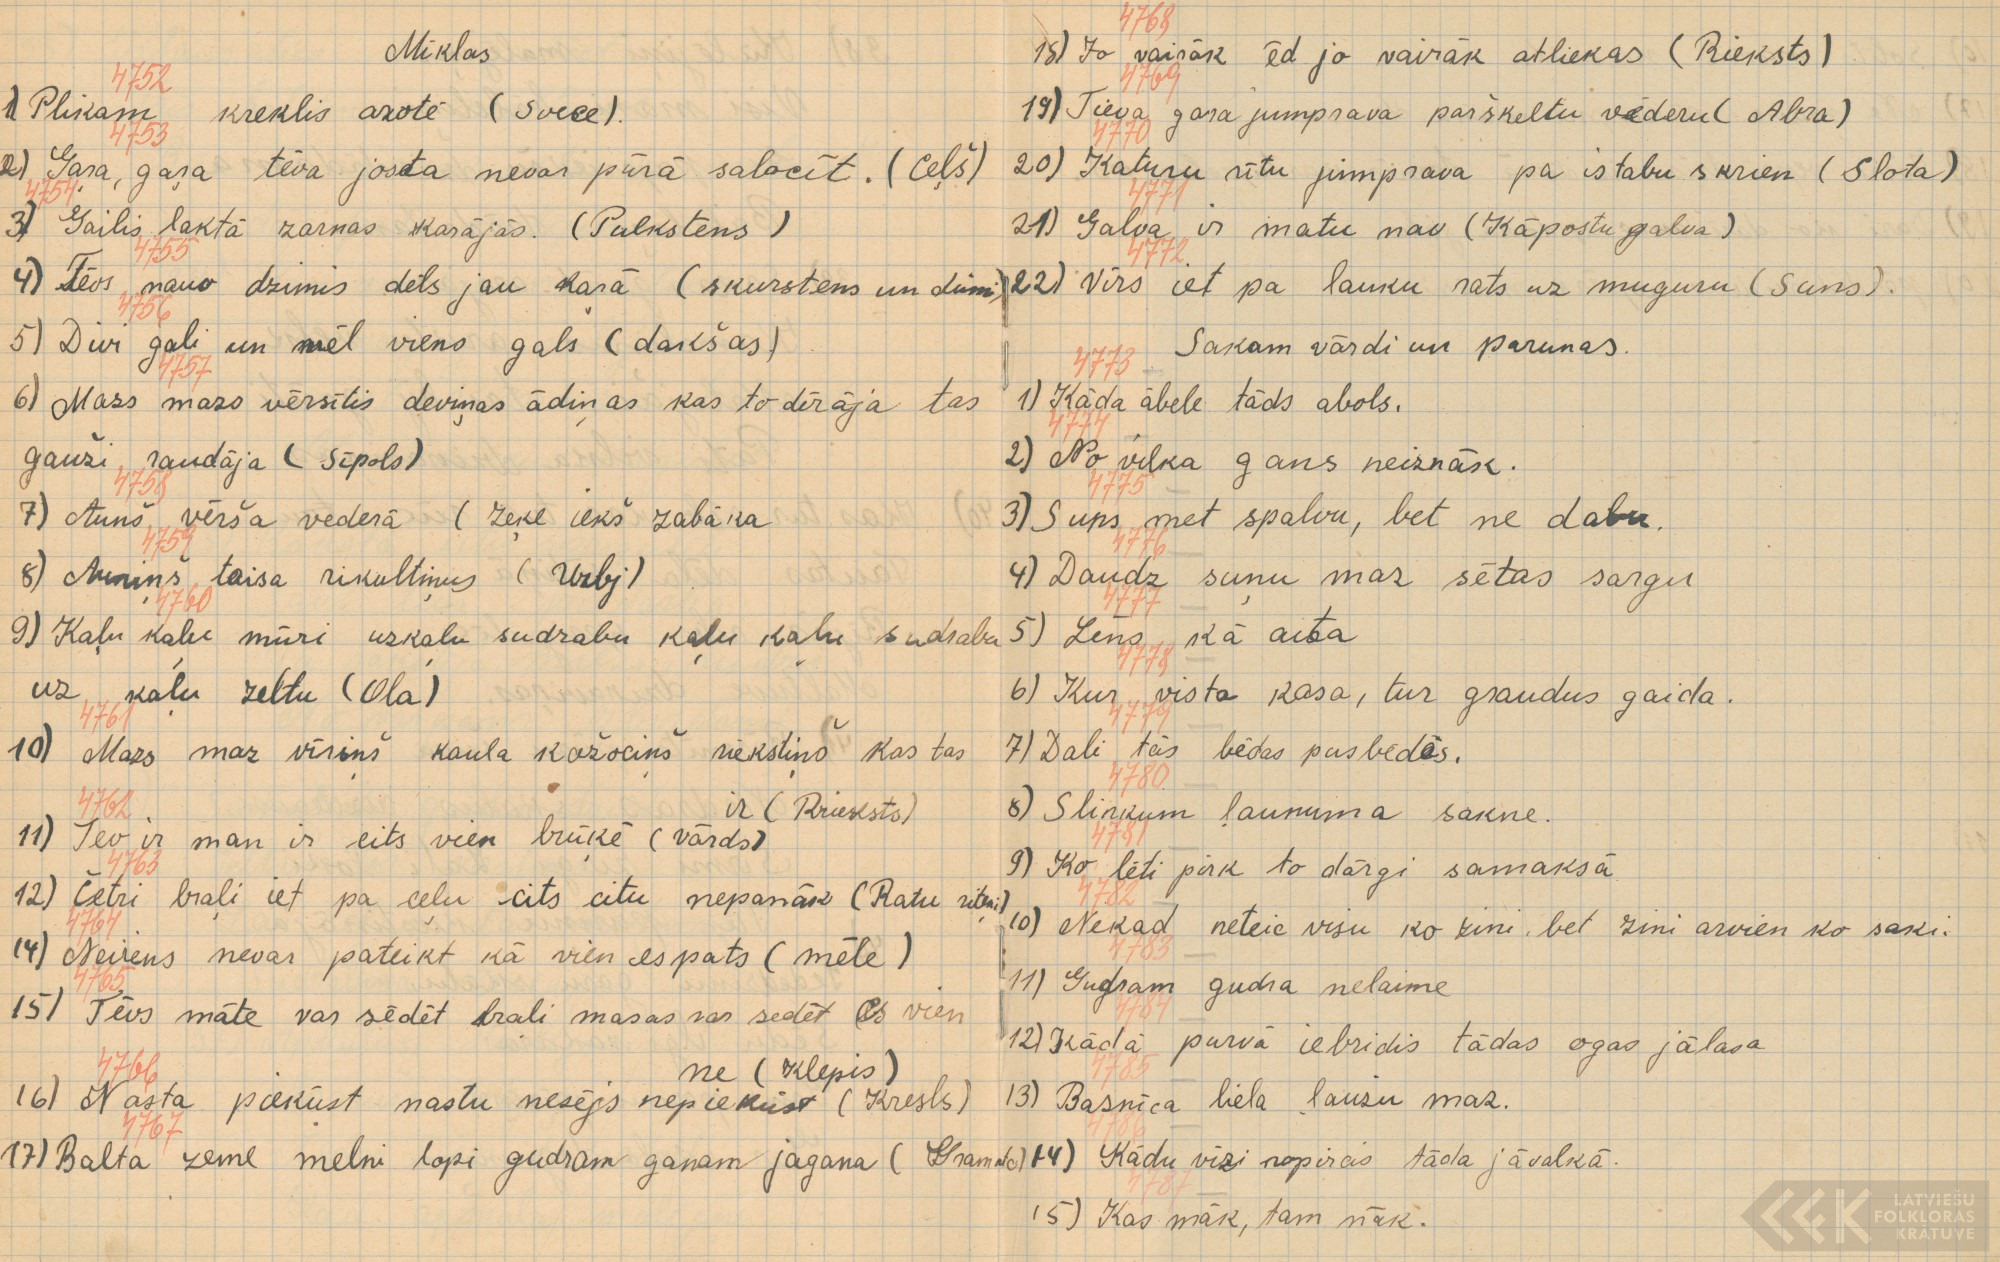 Mīklas
4752
1) Plikam kreklis azotē (svece).
4753
2) Gaŗa, gaŗa tēva josta nevar pūrā salocīt. (Ceļš)
4754
3) Gailis laktā zarnas karājās. (Pulkstens)
4755
4) Tēvs nauv dzimis dēls jau kaŗā (skurstens un dūmi)
4756
5) Divi gali un mēl viens gals (dakšas)
4757
6) Mazs mazs vērsītis deviņas ādiņas kas to dīrāja tas
gauži raudāja (sīpols)
4758
7) Aunš vērša vederā (zeķe iekš zabāka
4759
8) Auniņš taisa rikultiņus (Urbj)
4760
9) Kaļu kaļu mūri uzkaļu sudrabu kaļu kaļu sudrabu
uz kaļu zeltu (Ola)
4761
10) Mazs maz vīriņš kaula kažociņš riekstiņš kas tas
ir (Rrieksts)
4762
11) Tev ir man ir cits vien brūķē (vārds)
4763
12) Četri braļi iet pa ceļu cits citu nepanāk (Ratu riteņi)
4764
14) Neviens nevar pateikt kā vien es pats (mēle)
4765
15) Tēvs māte var sēdēt brali masas var sedēt es vien
ne (Klēpis)
4766
16) Nasta piekūst nastu nesējs nepiekūst (Kresls)
4767
17) Balta zeme melni lopi gudram ganam jāgana (Gramata)
4768
18) Jo vairāk ēd jo vairāk atliekas (Rieksts)
4769
19) Tieva gara jumprava parškeltu vēderu (Abra)
4770
20) Katuru rītu jumprava pa istabu skrien (Slota)
4771
21) Galva ir matu nav (Kāpostu galva)
4772
22) Vīrs iet pa lauku rats uz muguru (Suns).
Sakam vārdi un parunas.
4773
1) Kāda ābele tāds abols.
4774
2) No vilka gans neiznāk.
4775
3) Suns met spalvu, bet ne dabu.
4776
4) Daudz suņu maz sētas sargu
4777
5) Lēns kā aita
4778
6) Kur vista kasa, tur graudus gaida.
4779
7) Dali tās bēdas pusbedēs.
4780
8) Slinkum ļaunuma sakne.
4781
9) Ko lēti pirk to dārgi samaksā
4782
10) Nekad neteic visu ko zini, bet zini arvien ko saki.
4783
11) Gudram gudra nelaime
4784
12) Kādā purvā iebridis tādas ogas jālasa
4785
13) Baznīca liela ļaužu maz.
4786
14) Kādu vīzi nopircis tāda jāvalkā.
4787
15) Kas māk, tam nāk.
LATVIEŠU
FOLKLORAS
KRĀTUVE